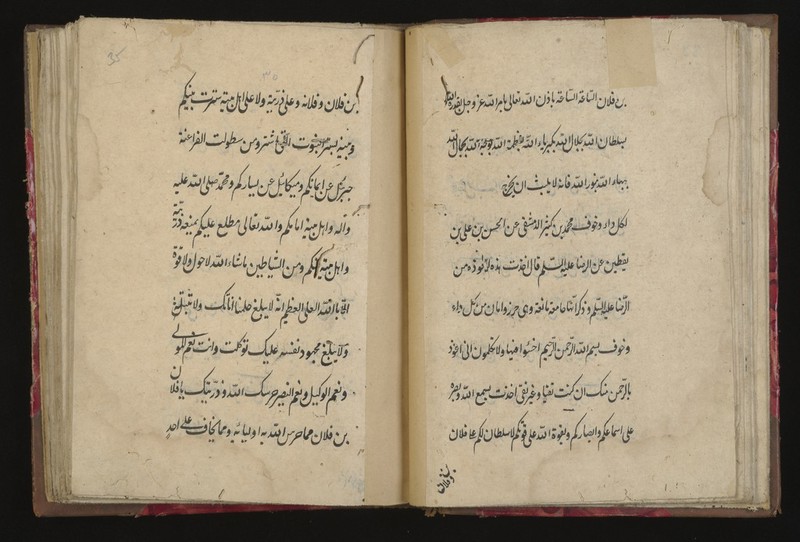 بن فلان الساعة الساعة باذن الله تعالى بامر الله عز وجل بقدرة الله
بسلطان الله بجلال الله بكبرياء الله بعظمة الله بوجه الله بجمال الله
ببهاء الله بنور الله فانه لا يلبث ان يخرج
لكل داء وخوف محمد بن كثير الدمشقي عن الحسن بن علي بن
يقطين عن الرضا عليه السلم قال اخذت هذه العوذة من
الرضا عليه السلم وذكر انها جامعة مانعة وهي حرز وامان من كل داء
وخوف بسم الله الرحمن الرحيم اخسئوا فيها ولا تكلمون انى اعوذ
بالرحمن منك ان كنت تقيا وغير تقى اخذت بسمع الله وبصره
على اسماعكم وابصاركم وبقوة الله على قوتكم لا سلطان لكم على فلان
بن فلان
35
بن فلان وفلانه وعلى ذريته ولا على اهل بيته سترت بينكم
وبينه بستر النبوت التى استتروا من سطوات الفراعنة
جبرئيل عن ايمانكم وميكائيل عن يساركم ومحمد صلى الله عليه
وآله واهل بيته امامكم والله تعالى مطلع عليكم بمنعه ذريته
واهل بيته منكم ومن الشياطين ماشاء الله لا حول ولا قوة
الا بالله العلى العظيم انه لا يبلغ حلمنا اناتك ولا تبتله
ولا يبلغ مجهود نفسه عليك توكلت وانت نعم المولى
ونعم الوكيل ونعم النصير حرسك الله وذريتك يا فلان
بن فلان مما حرس الله به اوليائه ومما يخاف على احد